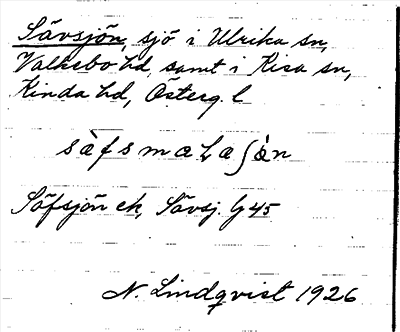 Sävsjön, sjö i Ulrika sn,
Valkebo hd, samt i Kisa sn,
Kinda hd, Österg. l
Söfsjön ek, Sävsj. G 45
N. Lindqvist 1926